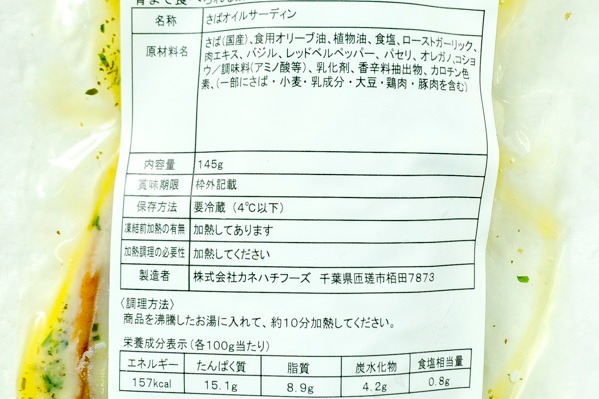 骨まで食べられる
名称 さばオイルサーディン
原材料名 さば(国産)、食用オリーブ油、植物油、食塩、ローストガーリック、
肉エキス、バジル、レッドベルペッパー、パセリ、オレガノ、コショ
ウ／調味料(アミノ酸等)、乳化剤、香辛料抽出物、カロチン色
素、(一部にさば・小麦・乳成分・大豆・鶏肉・豚肉を含む)
内容量 145g
賞味期限 枠外記載
保存方法 要冷蔵（4℃以下）
凍結前加熱の有無 加熱してあります
加熱調理の必要性 加熱してください
製造者 株式会社カネハチフーズ 千葉県匝瑳市栢田7873
〈調理方法〉
商品を沸騰したお湯に入れて、約10分加熱してください。
栄養成分表示（各100g当たり）
エネルギー たんぱく質 脂質 炭水化物 食塩相当量
157kcal 15.1g 8.9g 4.2g 0.8g